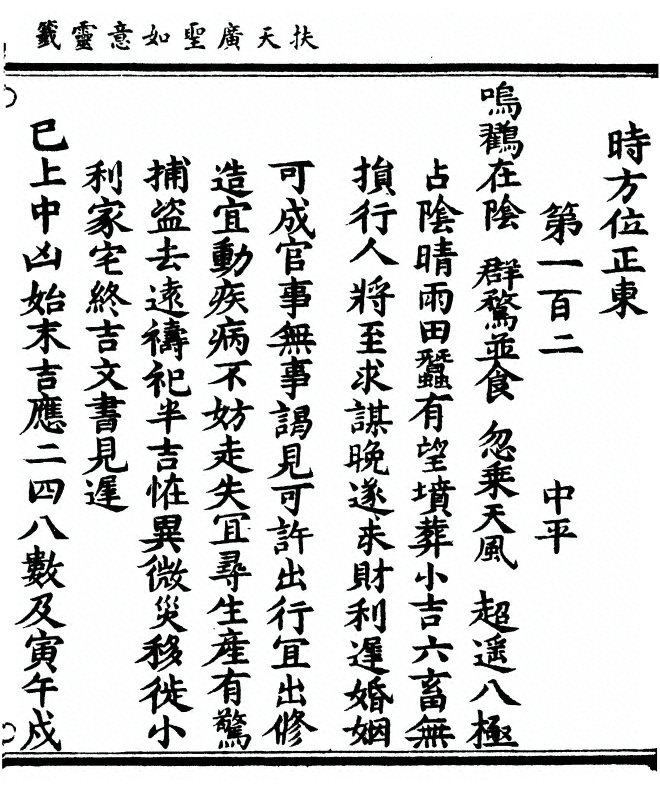 扶天廣聖如意靈籤
時方位正東
第一百二 中平
鳴鸛在陰 群鶩並食 忽乘天風 超遥八極
占陰晴雨田蠶有望墳葬小吉六畜無
損行人將至求謀晚遂求財利遲婚姻
可成官事無事謁見可許出行冝出修
造宜動疾病不妨走失冝尋生產有驚
捕盗去遠禱祀半吉恠異微災移徙小
利家宅終吉文書見遲
已上中凶始末吉應二四八數及寅午戍